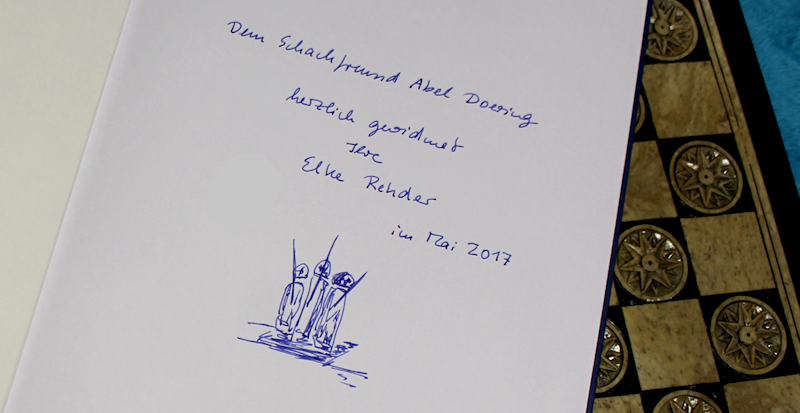 Dem Schachfreund Abel Doering
herzlich gewidmet
Ihre
Elke Rehder
im Mai 2017